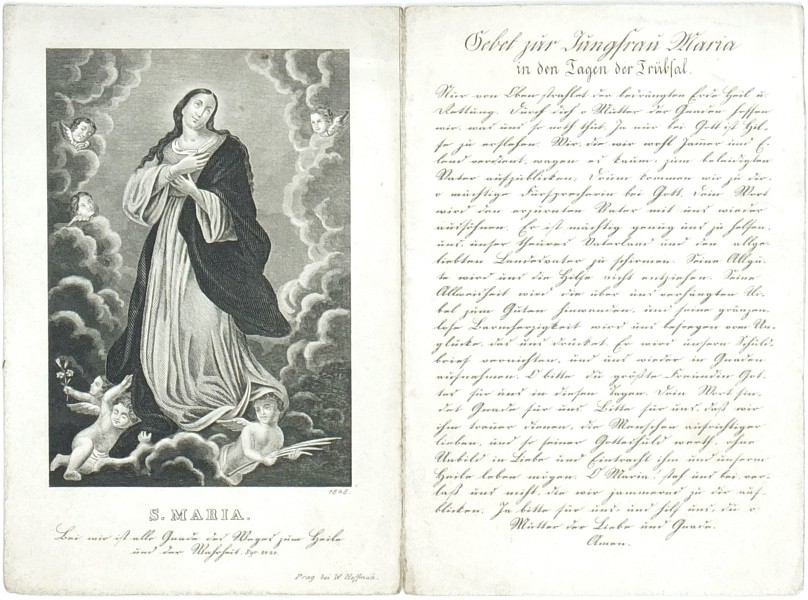 1848.
S. MARIA.
Bei mir ist alle Gnade des Weges zum Heile
und der Wahrheit.
Prag bei W. Hoffmann.
Gebet zur Jungfrau Maria
in den Tagen der Trübsal.
Nur von Oben strahlet der bedrängten Erde Heil u.
Rettung. Durch dich o Mutter der Gnaden hoffen
wir, was uns so noth thut, Ja nur bei Gott ist Hil-
fe zu erflehen. Wir, die wir wohl Jamer und E-
lend verdient, wagen es kaum, zum beleidigten
Vater aufzublicken; Drum kommen wir zu dir,
o mächtige Fürsprecherin bei Gott. Dein Wort
wird den erzürnten Vater mit uns wieder
aussöhnen. Er ist mächtig genug uns zu helfen,
uns, unser theures Vaterland und den allge-
liebten Landesvater zu schirmen. Seine Allgü-
te wird uns die Hilfe nicht entziehen. Seine
Allweisheit wird die über uns verhängten Ue-
bel zum Guten hinwenden, und seine gränzen-
lose Barmherzigkeit wird uns befreyen vom Un-
glücke, das uns drücket. Er wird unsern Schuld-
brief vernichten, und uns wieder in Gnaden
aufnehmen. O bitte du größte Freundin Got-
tes für uns in diesen Tagen. Dein Wort fin-
det Gnade für uns. Bitte für uns, daß wir
ihm treuer dienen, die Menschen aufrichtiger
lieben, und so seiner Gotteshuld werth, ohne
Unbild in Liebe und Eintracht ihm und unserm
Heile leben mögen. O Maria! steh uns bei, ver-
laß uns nicht, die wir jammernd zu dir auf-
blicken. Ja bitte für uns, und hilf uns, du o
Mutter der Liebe und Gnade.
Amen.